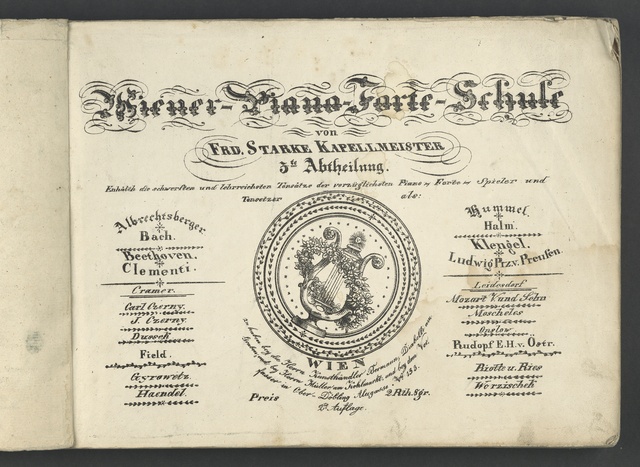 Wiener-Piano-Forte-Schule
von
FRD. STARKE KAPELLMEISTER
3te Abtheilung.
Enthält die schwersten und lehrreichsten Tonsätze der vorzüglichsten Piano Forte Spieler und
Tonsetzer als:
Albrechtsberger
Bach.
Beethoven.
Clementi.
Cramer.
Carl Czerny.
J. Czerny.
Dussek
Field.
Gyrowetz
Haendel.
Hummel.
Halm.
Klengel.
Ludwig Prz. v. Preußen.
Leidesdorf
Mozart V. und Sohn
Moscheles
Onslow
Rudopf E.H. v. Östr.
Riotte u. Ries
Worzischek
WIEN
zu haben bey den Herrn Kunsthändler Bermann,
bey Herrn Müller am Kohlmarkt und bey dem Ver-
fasser in Ober-Döbling
Preis 2 Rth. 8 gr.
Auflage.